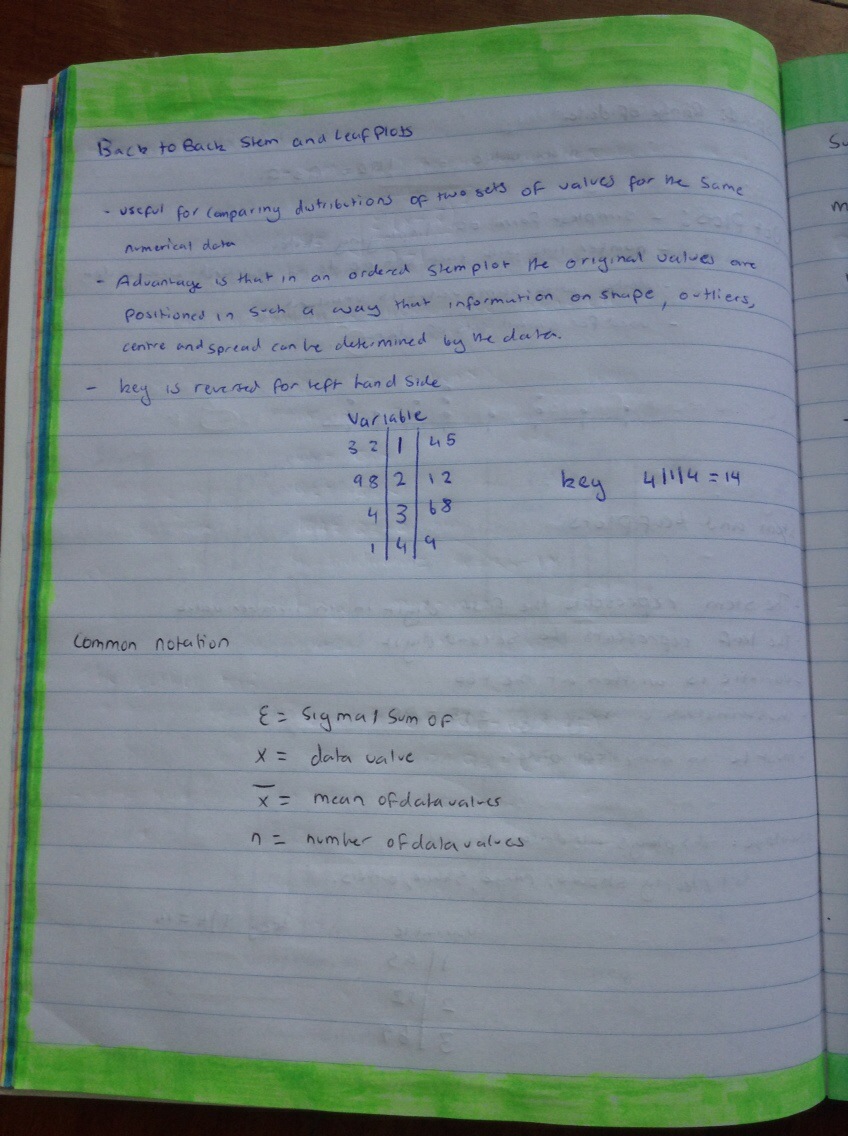 Back to Back Stem and Leaf Plots
- useful for comparing distributions of two sets of values for the same
numerical data
- Advantage is that in an ordered stemplot the original values are
positioned in such a way that information on shape, outliers,
centre and spread can be determined by the data.
- key is reversed for left hand side
Variable
3 2 | 1 | 4 5
9 8 | 2 | 1 2
key 4|1|4 = 14
4 | 3 | 6 8
1 | 4 | 9
Common notation
Σ = sigma / sum of
x = data value
x̄ = mean of data values
n = number of data values
Su
m